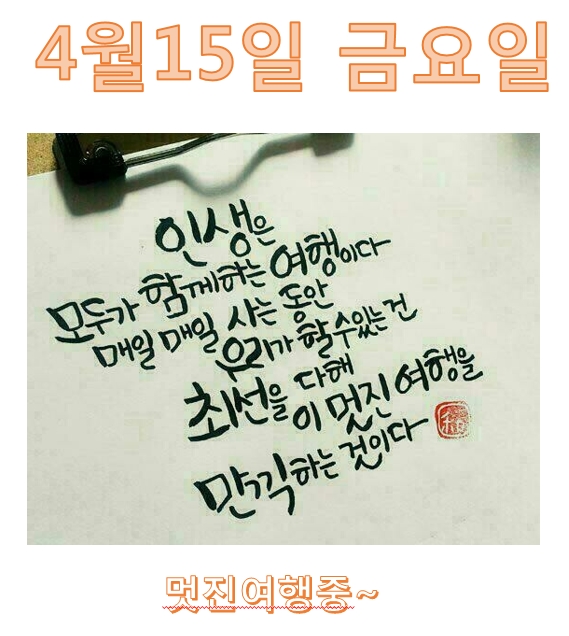 4월15일 금요일
인생은
모두가 함께하는 여행이다
매일 매일 사는 동안
우리가 할 수 있는 건
최선을 다해
이 멋진 여행을
만끽하는 것이다
멋진여행중~